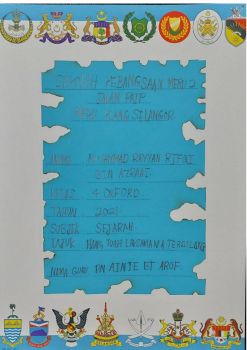 SEKOLAH KEBANGSAAN MERU 2
JALAN PAIP
MERU KLANG SELANGOR
NAMA : MUHAMMAD RAYYAN RIFQI
BIN
KELAS : 4 OXFORD
TAHUN : 2021
SUBJEK : SEJARAH
TAJUK : HANG TUAH LAKSAMANA TERBILANG
NAMA GURU : PN AINIE BT AROF